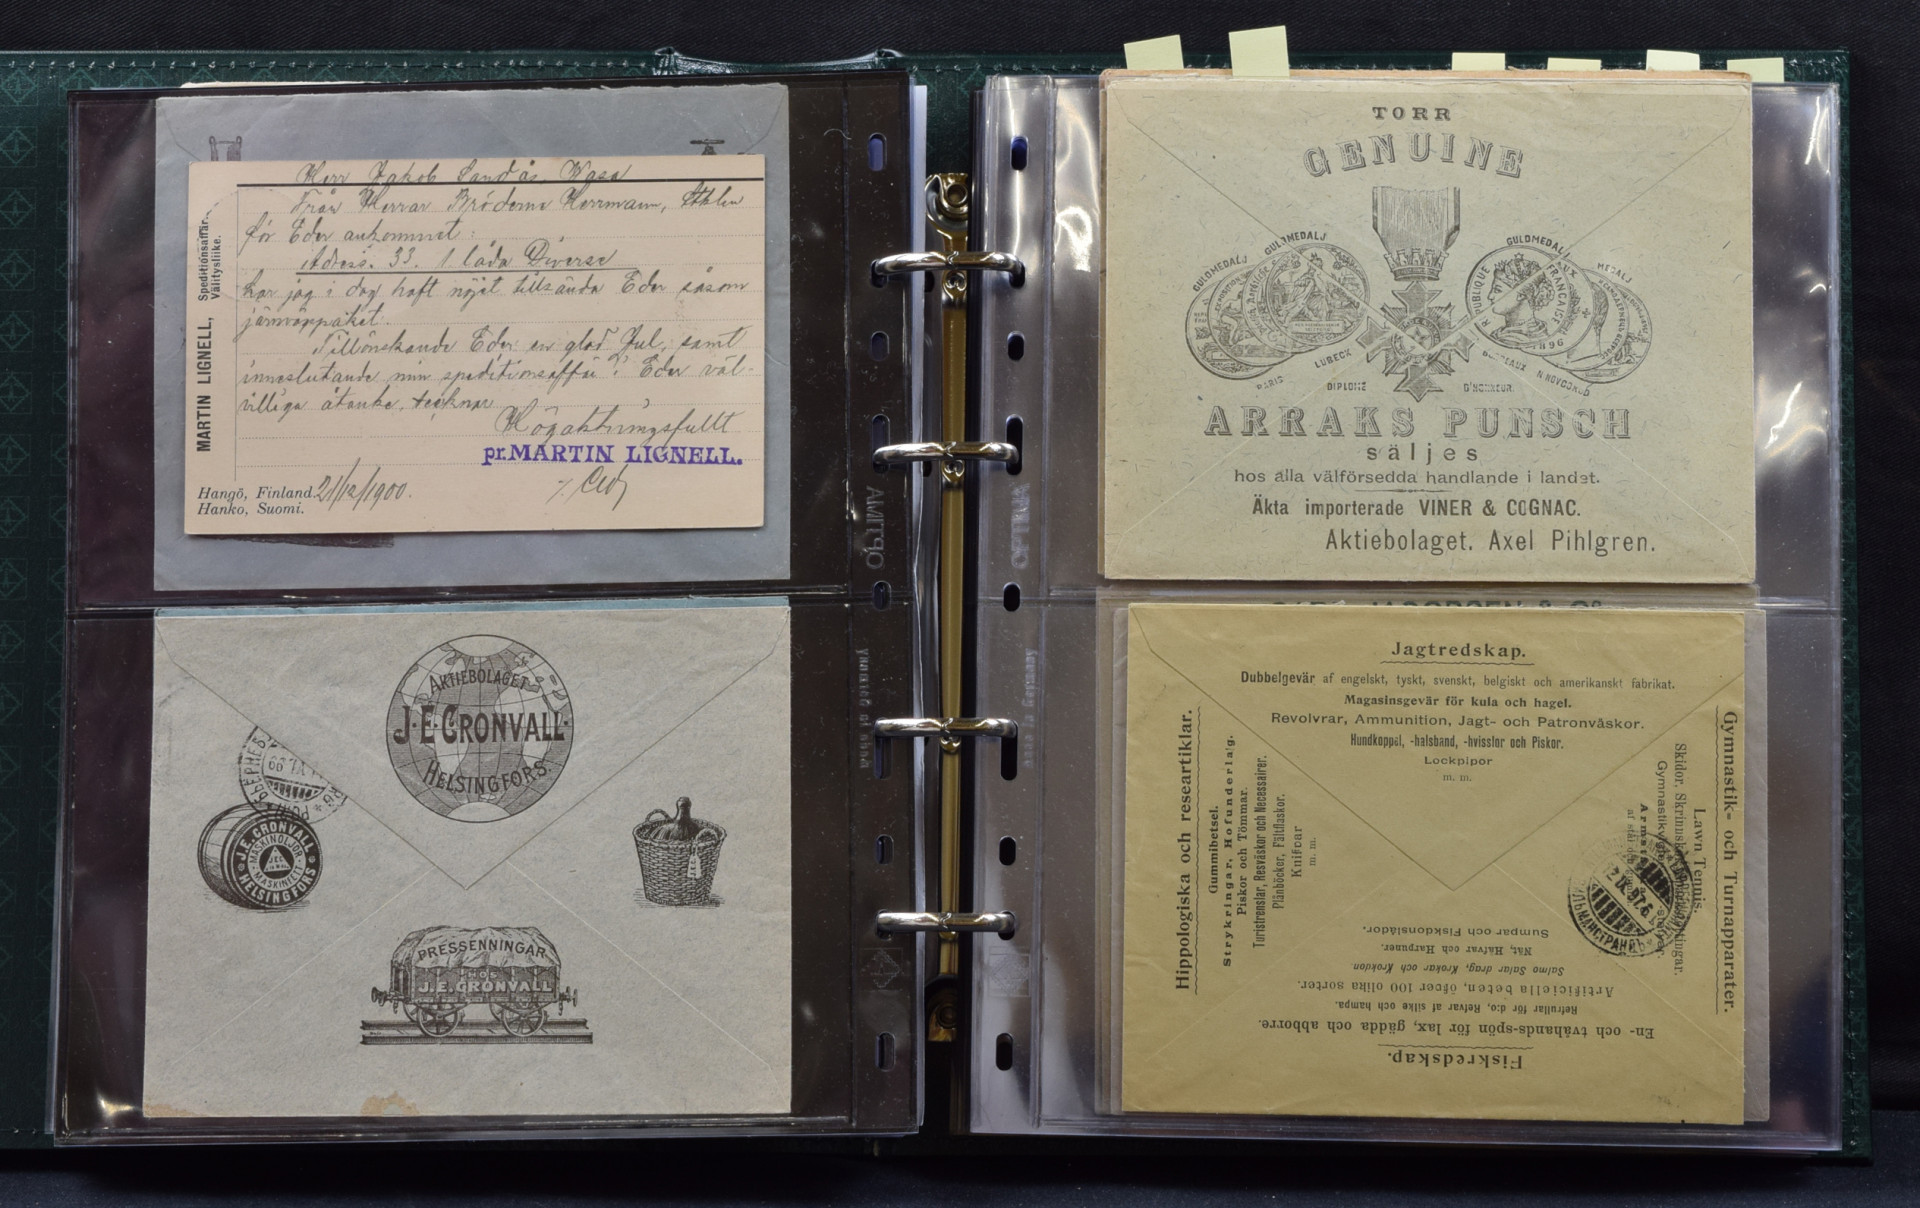 Herr Jakob Sandås, Wasa
Från Herrar Bröderna Herrmann,
för Eder ankommet:
Adress. 33. 1 låda Diverse
har jag i dag haft nöjet tillsända Eder såsom
järnvägspaket.
Tillönskande Eder en glad Jul, samt
inneslutande min speditionsaffär i Eder väl-
villiga åtanke, tecknar
Högaktningsfullt
pr. MARTIN LIGNELL.
Hangö, Finland. 21/12/1900.
Hanko, Suomi.
MARTIN LIGNELL, Speditionsaffär.
Välitysliike.
AKTIEBOLAGET
J·E·CRONVALL·
HELSINGFORS.
J.E. CRONVALL
MASKINOLJOR
MASKINFETT
HELSINGFORS
PRESSENNINGAR
HOS
J.E.CRONVALL
TORR
GENUINE
GULDMEDALJ GULDMEDALJ GULDMEDALJ MEDALJ
REPUBLIQUE FRANCAISE
1896
PARIS LUBECK DIPLOME D'HONNEUR. BORDEAUX N.NOVGOROD
ARRAKS PUNSCH
säljes
hos alla välförsedda handlande i landet.
Äkta importerade VINER & COGNAC.
Aktiebolaget. Axel Pihlgren.
Jagtredskap.
Dubbelgevär af engelskt, tyskt, svenskt, belgiskt och amerikanskt fabrikat.
Magasinsgevär för kula och hagel.
Revolvrar, Ammunition, Jagt- och Patronväskor.
Hundkoppel, -halsband, -hvisslor och Piskor.
Lockpipor
m. m.
Hippologiska och researtiklar.
Gummibetsel.
Strykringar, Hofunderlag.
Piskor och Tömmar.
Turistrenslar, Resväskor och Necessairer.
Plånböcker, Fältflaskor.
Knifvar
m. m.
Gymnastik- och Turnapparater.
Lawn Tennis.
Fiskredskap.
En- och tvåhands-spön för lax, gädda och abborre.
Refrullar för d:o, Refvar af silke och hampa.
Artificiella beten, öfver 100 olika sorter.
Salmo Salar drag, Krokar och Krokdon
Nät, Håfvar och Harpuner.
Sumpar och Fiskdonslådor.